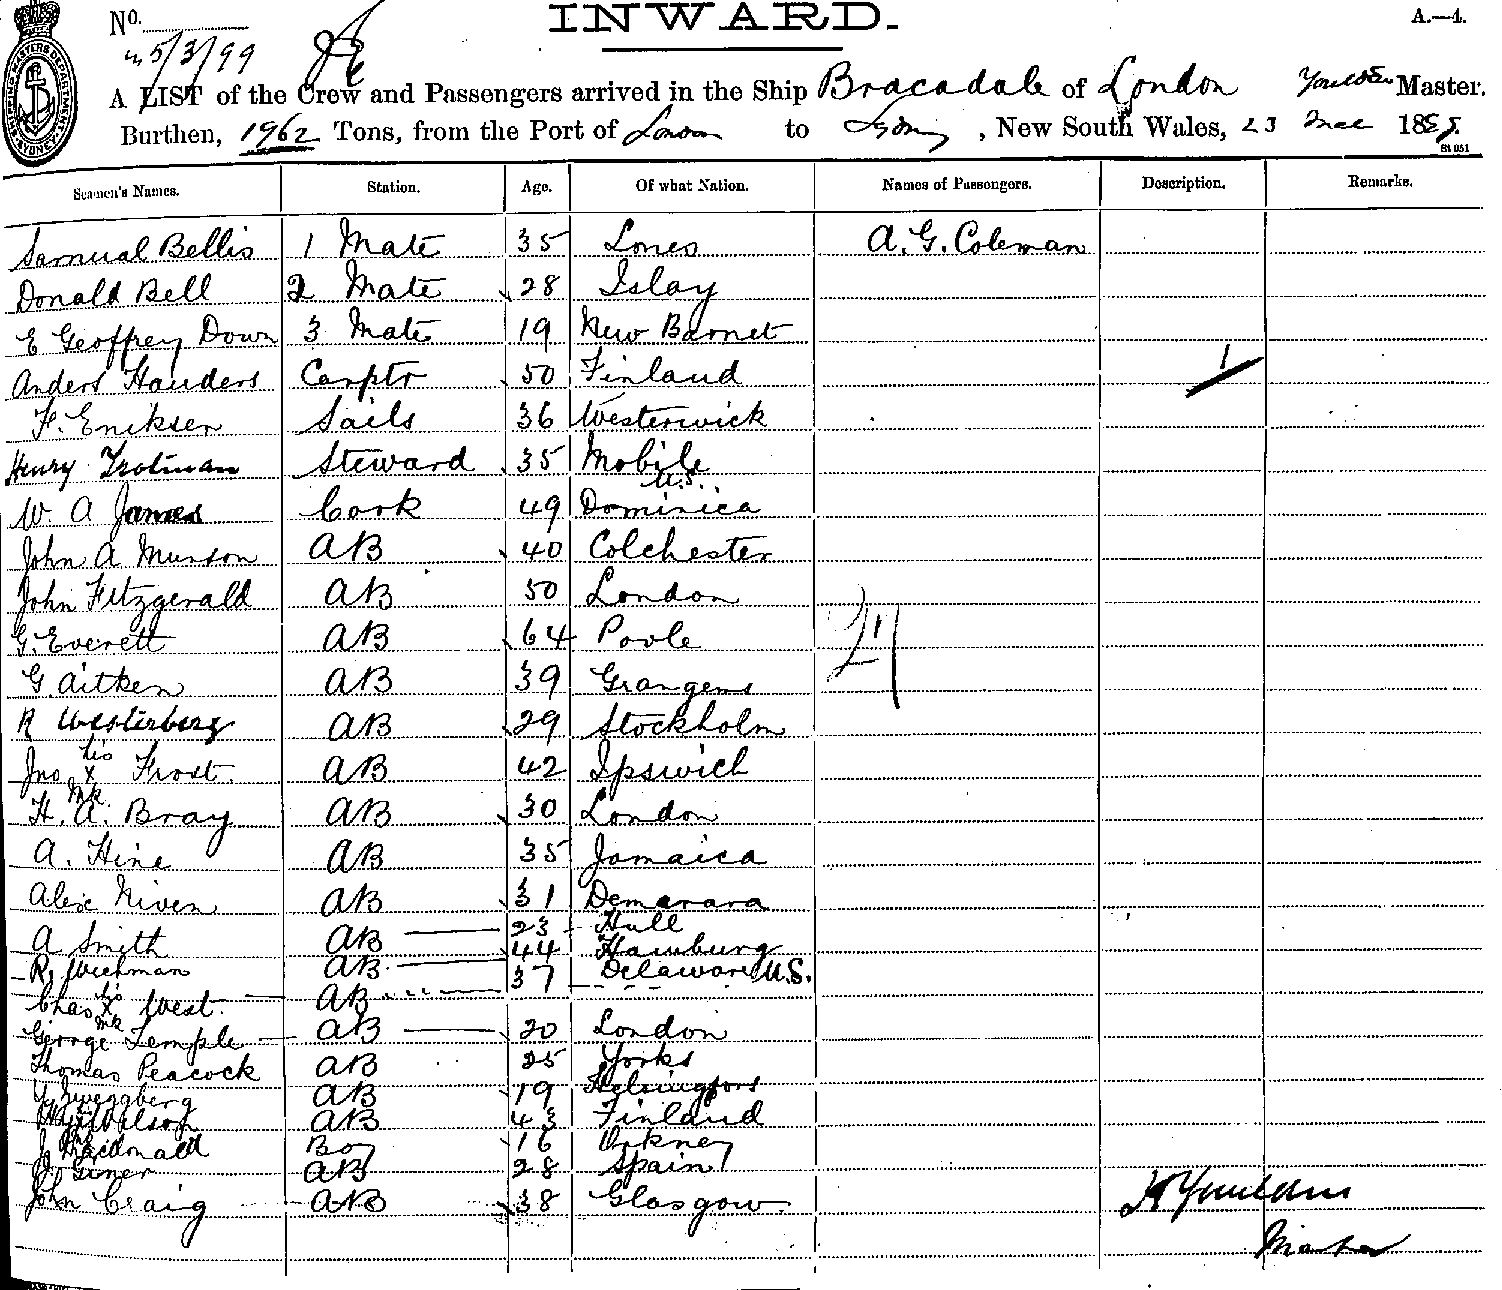 INWARD.
A.—4.
No.
5/3/99
A LIST of the Crew and Passengers arrived in the Ship Bracadale of London Master.
Burthen, 1962 Tons, from the Port of London to Sydney, New South Wales, 23 18
Seamen's Names. Station. Age. Of what Nation. Names of Passengers. Description. Remarks.
Samual Bellis 1 Mate 35 A. G. Coleman
Donald Bell 2 Mate 28 Islay
E Geoffrey Down 3 Mate 19 New Barnet
Anders Hauders Carptr 50 Finland 1
F. Eriksen Sails 36 Westerwick
Henry Trotman Steward 35 Mobile U.S.
W. A James Cook 49 Dominica
John A Munson AB 40 Colchester
John Fitzgerald AB 50 London
G. Everett AB 64 Poole
G Aitken AB 39 Grangems
R Westerberg AB 29 Stockholm
Jno his x mk Frost AB 42 Ipswich
H. A. Bray AB 30 London
A. Hine AB 35 Jamaica
Alex Niven AB 31 Demarara
A Smith AB 23 Hull
R. Wichman AB 44 Hamburg
Chas his x mk West AB 37 Delaware U.S.
George Temple AB 20 London
Thomas Peacock AB 25 Yorks
AB 19 Helsingfors
Wilson AB 43 Finland
J Macdonald Boy 16 Orkney
J. Giner AB 28 Spain
John Craig AB 38 Glasgow
Master